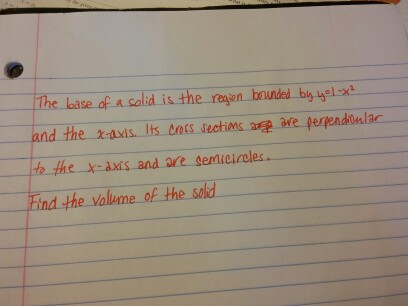 The base of a solid is the region bounded by y=1-x²
and the x-axis. Its cross sections are perpendicular
to the x-axis and are semicircles.
Find the volume of the solid